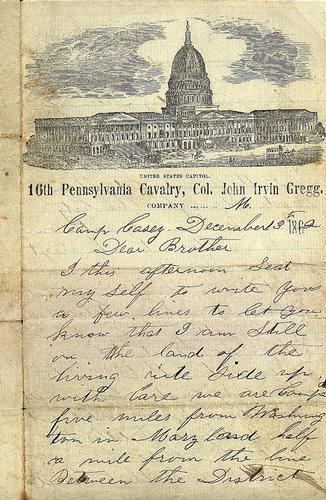 UNITED STATES CAPITOL.
16th Pennsylvania Cavalry, Col. John Irvin Gregg.
COMPANY ........ M.
Camp Casey. December 3 1862
Dear Brother
I this afternoon Seat
my self to write you
a few lines to let you
know that I am Still
on the land of the
living rite Side up
with Care we are Camp
five miles from Washing
ton in Maryland half
a mile from the line
Between the District